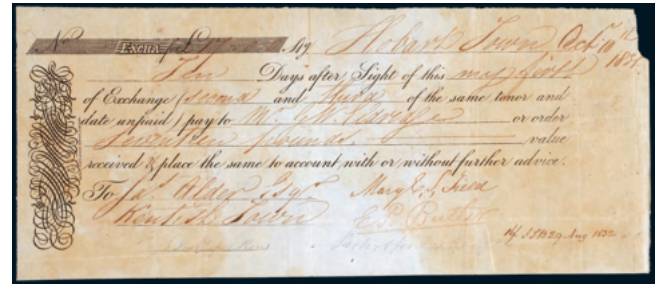 No Excha for £17 Stg Hobart Town Octr 10th 1831
Ten Days after Sight of this my first
of Exchange (second and third of the same tenor and
date unpaid) pay to Mr. or order
Seventeen pounds value
received & place the same to account, with or without further advice.
To Jas Alder Esqr Mary
Kentish Town E P Butler
29 Aug 1832